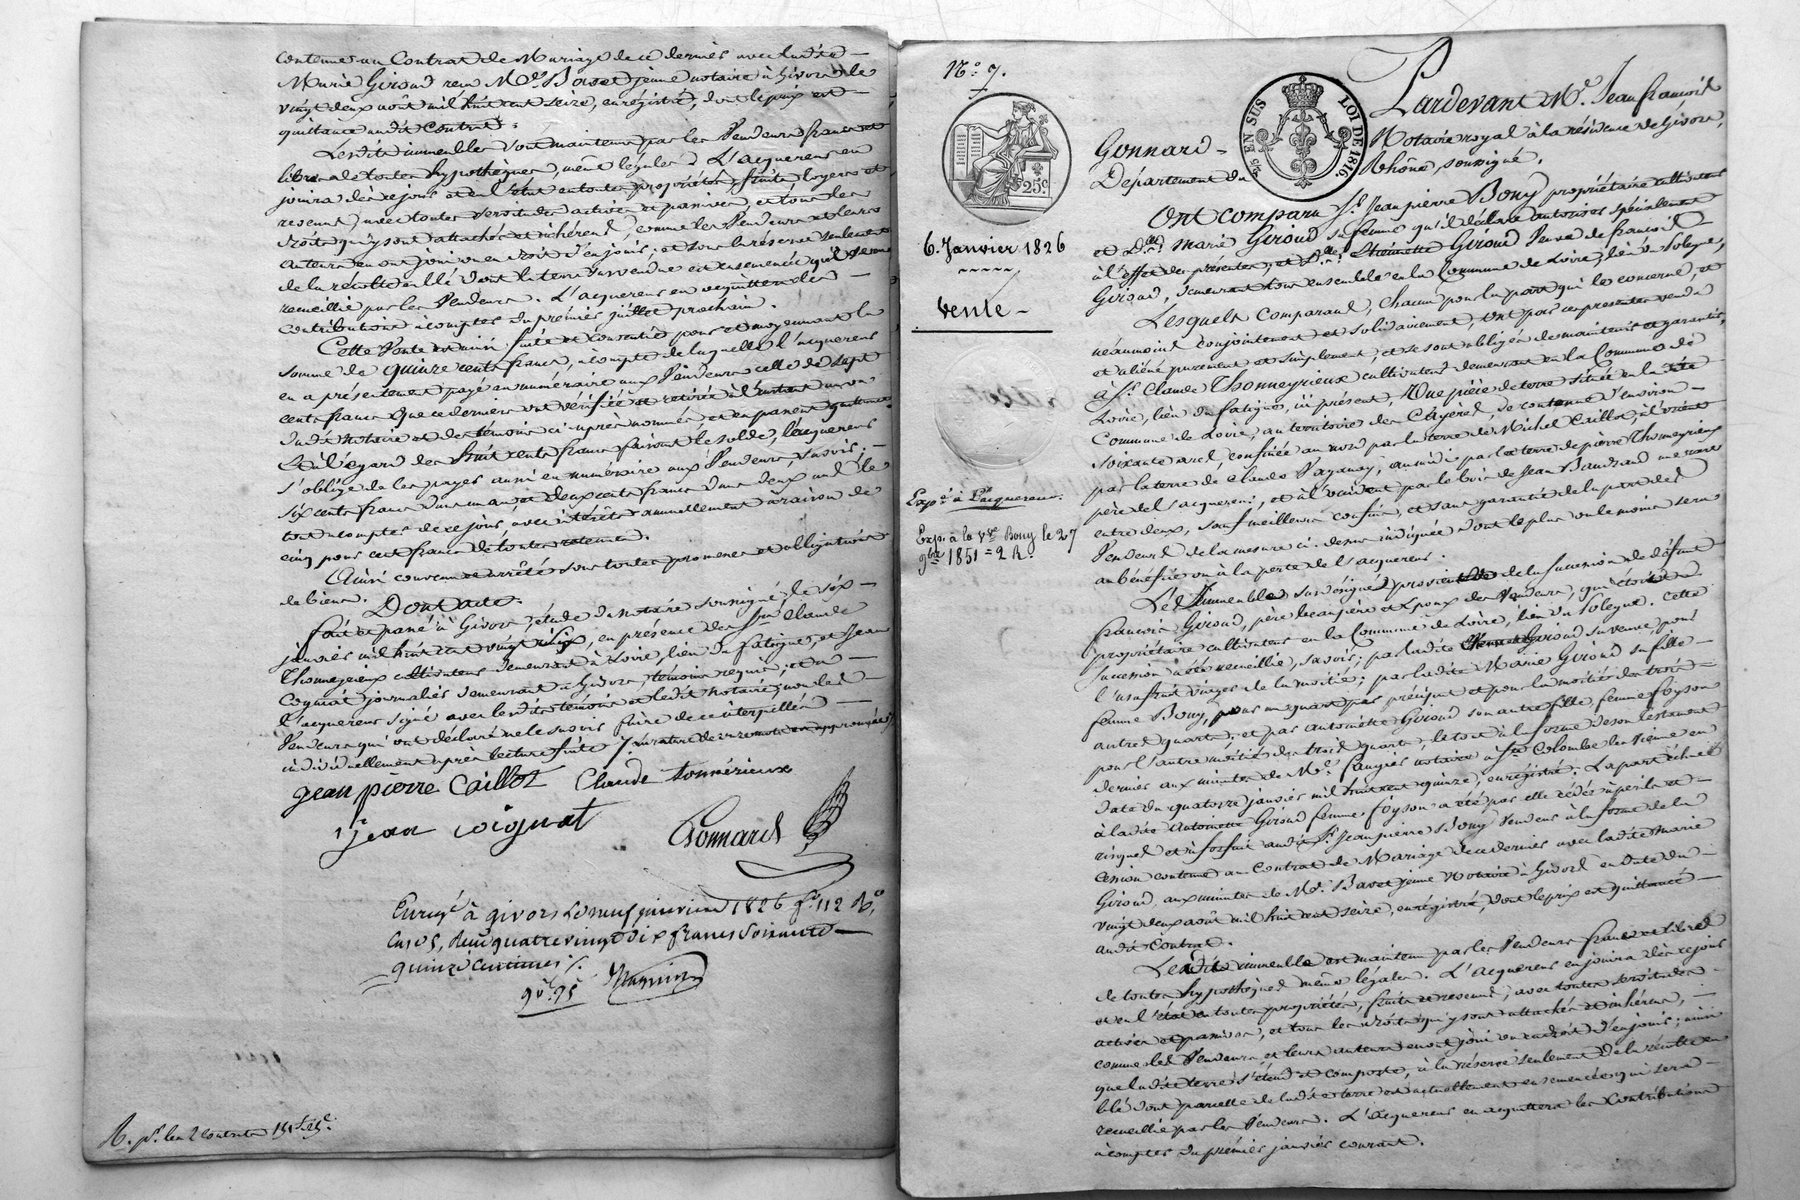 contenue au Contrat de Mariage de ce dernier avec ladite
Marie Giroud reçu Me Bavet jeune notaire à Givors le
vingt deux août mil huit cent seize, enregistré, dont le prix est
quittancé audit Contrat.
Lesdits immeubles sont maintenus par les Vendeurs francs et
libres de toutes hypothèques, même légales. L'acquereur en
jouira dès ce jour et en l'état en toutes propriétés, fruits, loyers et
revenus, avec toutes servitudes actives et passives, et tous les
droits qui y sont attachés et inhérens, comme les Vendeurs et leurs
auteurs en ont joui ou eu droit d'en jouir; et sous la réserve seulement
de la récolte en blé dont la terre survendue est ensemencée qui sera
recueillie par les Vendeurs. L'acquereur en acquittera les
contributions à compter du premier juillet prochain.
Cette Vente est ainsi faite et consentie pour et moyennant la
somme de quinze cents francs, à compte de laquelle l'acquereur
en a présentement payé en numéraire aux Vendeurs celle de sept
cents francs que ces derniers ont vérifiée et retirée à l'instant au vu
dudit notaire et des témoins ci-après nommés, et en passent quittance
Et à l'égard des huit cents francs faisant le solde, l'acquereur
s'oblige de les payer aussi en numéraire aux Vendeurs, savoir;
six cents francs dans un an, et deux cents francs dans deux ans, le
tout à compter de ce jour, avec intérêts annuellement à raison de
cinq pour cent francs de toutes retenues.
Ainsi convenu et arrêté sous toutes promesses et obligations
de biens. Dont acte.
Fait et passé à Givors, étude du notaire soussigné, le six
janvier mil huit cent vingt six, en présence de Srs Claude
Thonneyrieux cultivateur demeurant à Loire, lieu du Fatigue, et Jean
Cognat journalier demeurant à Givors, témoins requis, et a
l'acquereur signé avec lesdits témoins et ledit notaire, non les
Vendeurs qui ont déclaré ne le savoir faire de ce interpellés
individuellement après lecture faite
jean pierre Caillot Claude tonnérieux
jean coignat
Gonnard
Enregé à givors Le neuf janvier 1826 fo 112 Ro
Cases, Reçu quatre vingt dix francs soixante
quinze centimes
90f. 75
No 7.
25c
75 EN SUS
LOI DE 1816.
6. Janvier 1826
Vente
Expé à l'acquereur.
Exp. à la Vve Bouy le 27
9bre 1851 = 2 R.
Pardevant Me Jean françois
Gonnard Notaire royal à la résidence de Givors,
Département du Rhône, soussigné,
Ont comparu Sr Jean pierre Bouy propriétaire cultivateur
et De Marie Giroud sa femme qu'il déclare autoriser spécialement
à l'effet des présentes, et De Etiennette Giroud Veuve de françois
Giroud, demeurant tous ensemble en la Commune de Loire, lieu du Sologue,
Lesquels comparans, chacun pour la part qui les concerne, et
néanmoins conjointement et solidairement, ont par ces présentes vendu
et aliéné purement et simplement, et se sont obligés de maintenir et garantir,
à Sr Claude Thonneyrieux cultivateur demeurant en la Commune de
Loire, lieu du fatigue, ici présent, Une pièce de terre située en ladite
Commune de Loire, au territoire des de contenue d'environ
soixante ares, confinée au nord par la terre de Michel Caillot, à l'orient
par la terre de Claude au midi par la terre de pierre Thonneyrieux
père de l'acquereur, et à l'occident par le bois de Jean Baudrand une raie
entre deux, sauf meilleurs confins, et sans garantie de la part des
Vendeurs de la mesure ci-dessus indiquée dont le plus ou le moins sera
au bénéfice ou à la perte de l'acquereur.
L'immeuble sus désigné provient de la succession de défunt
françois Giroud, père, beau père et époux des Vendeurs, qui étoit
propriétaire cultivateur en la Commune de Loire, lieu du Sologue. Cette
succession a été recueillie, savoir; par ladite Giroud sa veuve, pour
l'usufruit viager de la moitié; par ladite Marie Giroud sa fille
femme Bouy, pour un quart par préciput et pour la moitié des trois
autres quarts; et par antoinette Giroud son autre fille, femme foyson
pour l'autre moitié des trois quarts, le tout à la forme de son testament
dernier aux minutes de Me faugier notaire à Ste Colombe les Vienne en
date du quatorze janvier mil huit cent quinze, enregistré. La part échue
à ladite Antoinette Giroud femme foyson a été par elle cédée à périls et
risques et à forfait audit Sr Jean pierre Bouy Vendeur à la forme de la
Cession contenue au Contrat de Mariage de ce dernier avec ladite Marie
Giroud, aux minutes de Me Bavet jeune Notaire à Givors en date du
vingt deux août mil huit cent seize, enregistré, dont le prix est quittancé
audit Contrat.
Ledit immeuble est maintenu par les Vendeurs franc et libre
de toutes hypothèques même légales. L'acquereur en jouira dès ce jour
et en l'état en toutes propriétés, fruits et revenus, avec toutes servitudes
actives et passives, et tous les droits qui y sont attachés et inhérens,
comme les Vendeurs et leurs auteurs en ont joui ou eu droit d'en jouir; ainsi
que ladite terre s'étend et comporte, à la réserve seulement de la récolte en
blé dont parcelle de ladite terre est actuellement ensemencée qui sera
recueillie par les Vendeurs. L'acquereur en acquittera les Contributions
à compter du premier janvier courant.